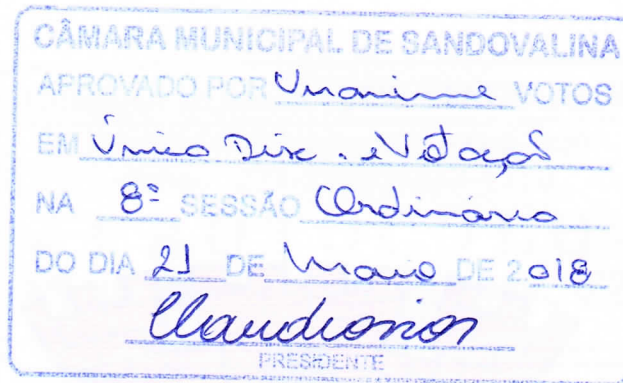 CÂMARA MUNICIPAL DE SANDOVALINA
APROVADO POR Unanime VOTOS
EM Única Disc. e Votação
NA 8ª SESSÃO Ordinária
DO DIA 21 DE Maio DE 2.018
PRESIDENTE